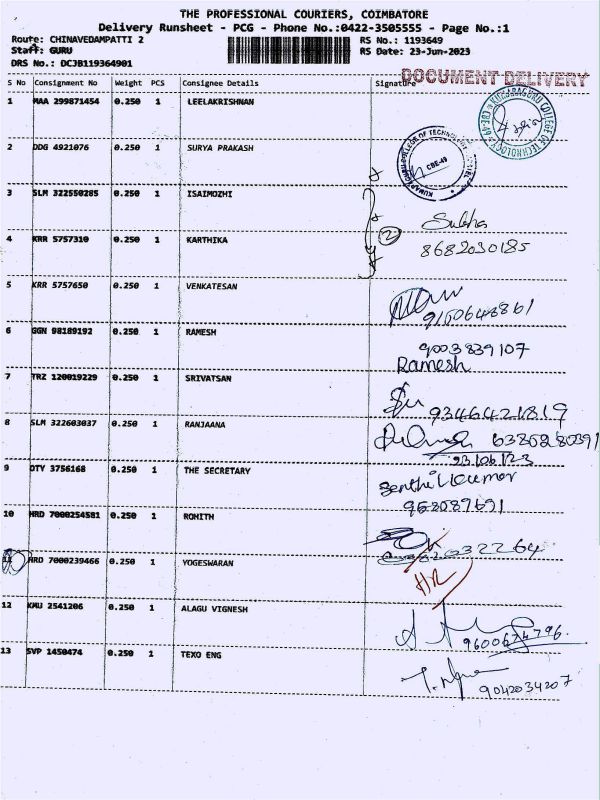 THE PROFESSIONAL COURIERS, COIMBATORE
Delivery Runsheet - PCG - Phone No.:0422-3505555 - Page No.:1
Route: CHINAVEDAMPATTI 2 RS No.: 1193649
Staff: GURU RS Date: 23-Jun-2023
DRS No.: DCJB119364901
DOCUMENT DELIVERY
S No Consignment No Weight PCS Consignee Details Signature
1 MAA 299871454 0.250 1 LEELAKRISHNAN
2 DDG 4921076 0.250 1 SURYA PRAKASH
CBE-49
3 SLM 322550285 0.250 1 ISAIMOZHI
2
4 KRR 5757310 0.250 1 KARTHIKA
8682030185
5 KRR 5757650 0.250 1 VENKATESAN
9150648861
6 GGN 98189192 0.250 1 RAMESH
9003839107
Ramesh
7 TRZ 120019229 0.250 1 SRIVATSAN
9346421819
8 SLM 322603037 0.250 1 RANJAANA
6380280391
23/06/123
9 OTY 3756168 0.250 1 THE SECRETARY
Senthil Kumar
10 HRD 7000254581 0.250 1 ROHITH
11 HRD 7000239466 0.250 1 YOGESWARAN
12 KMU 2541206 0.250 1 ALAGU VIGNESH
9600674796
13 SVP 1450474 0.250 1 TEXO ENG
9042034207